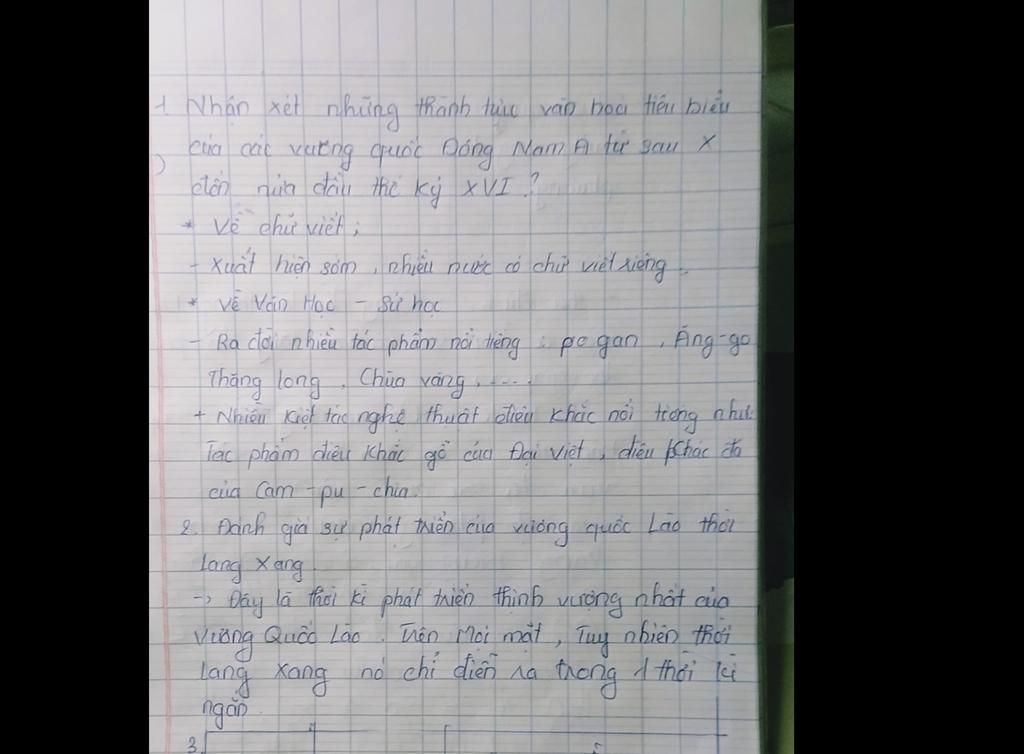 1. Nhận xét những thành tựu văn hoá tiêu biểu
của các vương quốc Đông Nam Á từ sau X
đến nửa đầu thế kỷ XVI ?
* Về chữ viết ;
- Xuất hiện sớm , nhiều nước có chữ viết riêng .
* Về Văn Học - Sử học
- Ra đời nhiều tác phẩm nổi tiếng : pa gan , Ăng-go
Thăng long , Chùa vàng , ....
+ Nhiều kiệt tác nghệ thuật điêu khắc nổi tiếng như
Tác phẩm điêu khắc gỗ của Đại Việt , điêu khắc đá
của Cam - pu - chia .
2. Đánh giá sự phát triển của vương quốc Lào thời
Lang Xang
-> Đây là thời kì phát triển thịnh vượng nhất của
Vương Quốc Lào . Trên Mọi mặt , Tuy nhiên thời
Lang Xang nó chỉ diễn ra trong 1 thời kì
ngắn .
3.